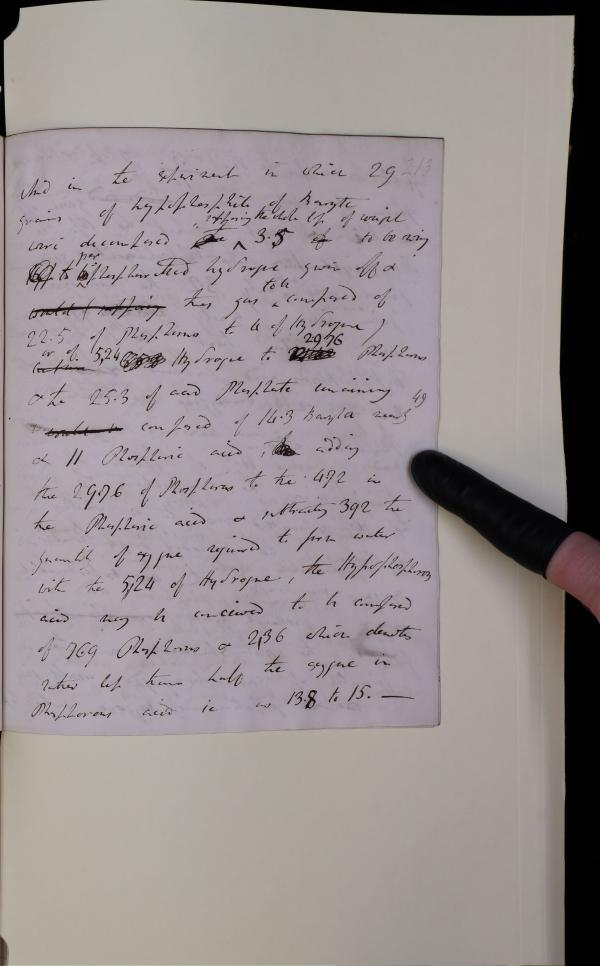 And in the experiment in which 29 213
grains of hypophosphite of Baryta
supposing the whole loss of weight
were decomposed the ^ 3.5 of to be owing
per
to phosphoretted hydrogene given off &
to be
this gas ^ composed of
22.5 of Phosphorus to 4 of Hydrogene)
2976
or of 5,24 Hydrogene to Phosphorus
& the 25.3 of acid Phosphate containing
49
composed of 14.3 Baryta nearly
& 11 Phosphoric acid, adding
the 2.976 of Phosphorus to the 4.92 in
the Phosphoric acid & subtracting 392 the
quantity of oxygene required to form water
with the 5,24 of Hydrogene, the Hypophosphorous
acid may be conceived to be composed
of 769 Phosphorus & 2,36 which denotes
rather less than half the oxygene in
Phosphorous acid ie as 13.8 to 15. —